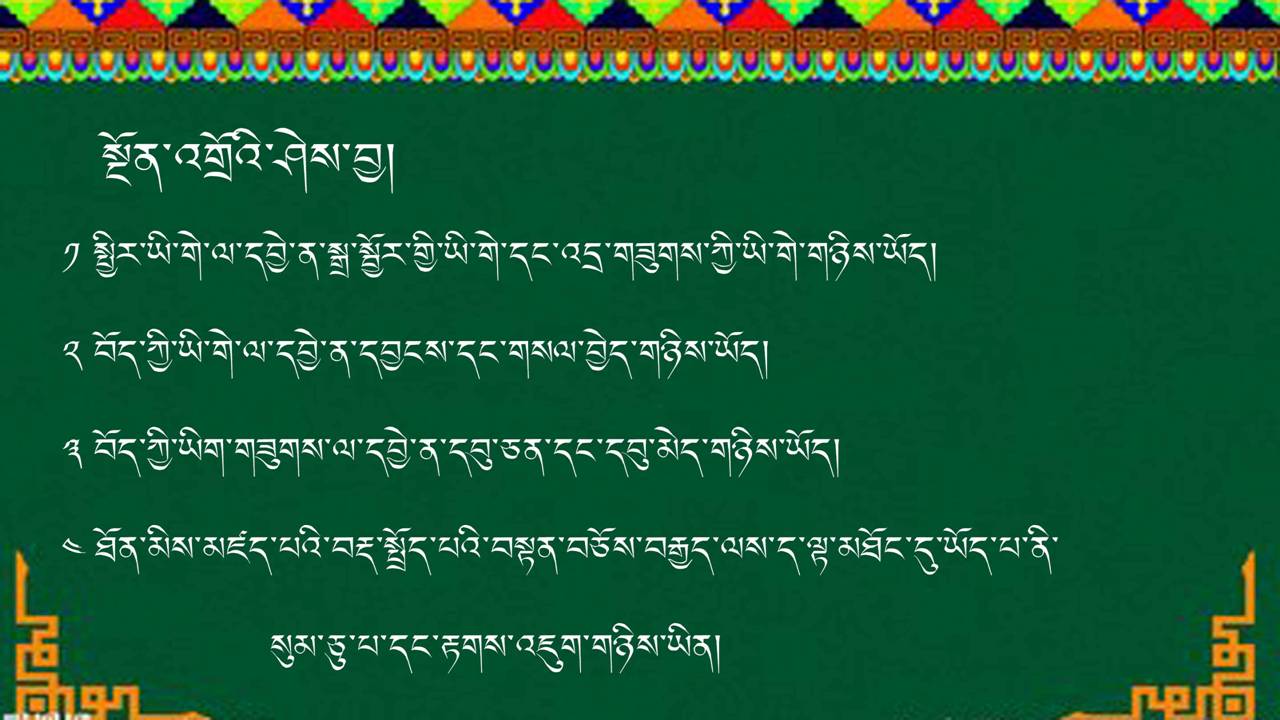 སྔོན་འགྲོའི་ཤེས་བྱ།
༡ སྤྱིར་ཡི་གེ་ལ་དབྱེ་ན་སྒྲ་སྦྱོར་གྱི་ཡི་གེ་དང་འདྲ་གཟུགས་ཀྱི་ཡི་གེ་གཉིས་ཡོད།
༢ བོད་ཀྱི་ཡི་གེ་ལ་དབྱེ་ན་དབྱངས་དང་གསལ་བྱེད་གཉིས་ཡོད།
༣ བོད་ཀྱི་ཡིག་གཟུགས་ལ་དབྱེ་ན་དབུ་ཅན་དང་དབུ་མེད་གཉིས་ཡོད།
༤ ཐོན་མིས་མཛད་པའི་བརྡ་སྤྲོད་པའི་བསྟན་བཅོས་བརྒྱད་ལས་ད་ལྟ་མཐོང་དུ་ཡོད་པ་ནི་
སུམ་ཅུ་པ་དང་རྟགས་འཇུག་གཉིས་ཡིན།